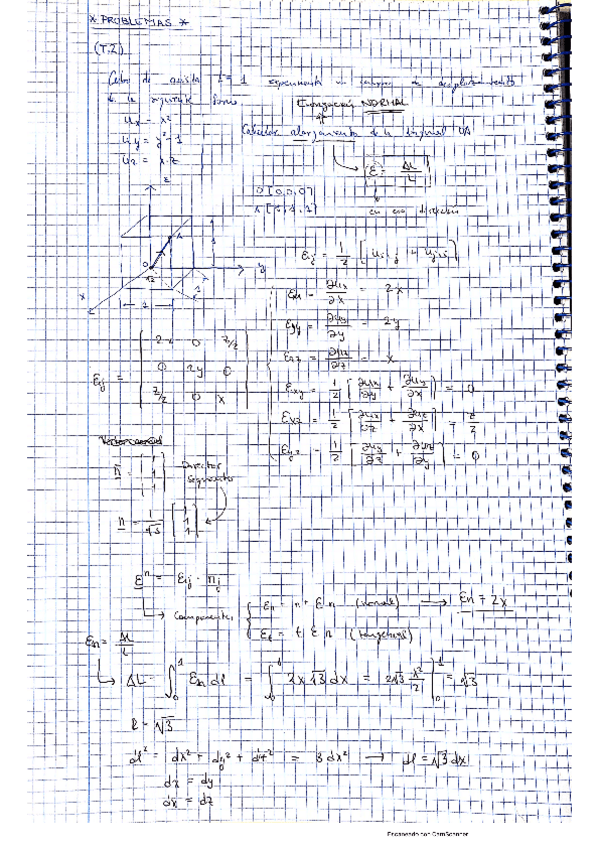 * PROBLEMAS *
(T.2)
Cubo de arista L = 1 experimenta un campo de desplazamiento
de la siguiente forma
Elongación NORMAL
ux = x²
uy = y² - 1
uz = x·z
Calcular alargamiento de la diagonal OA
ε = ΔL/L
O [0,0,0]
A [1,1,1]
en esa dirección
z
A
O
y
x
1
1
εij = 1/2 [ui,j + uj,i]
εxx = ∂ux/∂x = 2x
εyy = ∂uy/∂y = 2y
εzz = ∂uz/∂z = x
εxy = 1/2 [∂ux/∂y + ∂uy/∂x] = 0
εxz = 1/2 [∂ux/∂z + ∂uz/∂x] = z/2
εyz = 1/2 [∂uy/∂z + ∂uz/∂y] = 0
εij =
2x 0 z/2
0 2y 0
z/2 0 x
n =
1
1
1
Director
segmento
n = 1/√3
1
1
1
εⁿ = εij · nj
Componentes
εn = n · ε n (normal) → εn = 2x
εt = t ε n (tangencial)
εn = ΔL/L
ΔL = ∫₀¹ εn dl = ∫₀¹ 2x √3 dx = 2√3 x²/2 ]₀¹ = √3
l = √3
dl² = dx² + dy² + dz² = 3dx² → dl = √3 dx
dx = dy
dx = dz
Escaneado con CamScanner